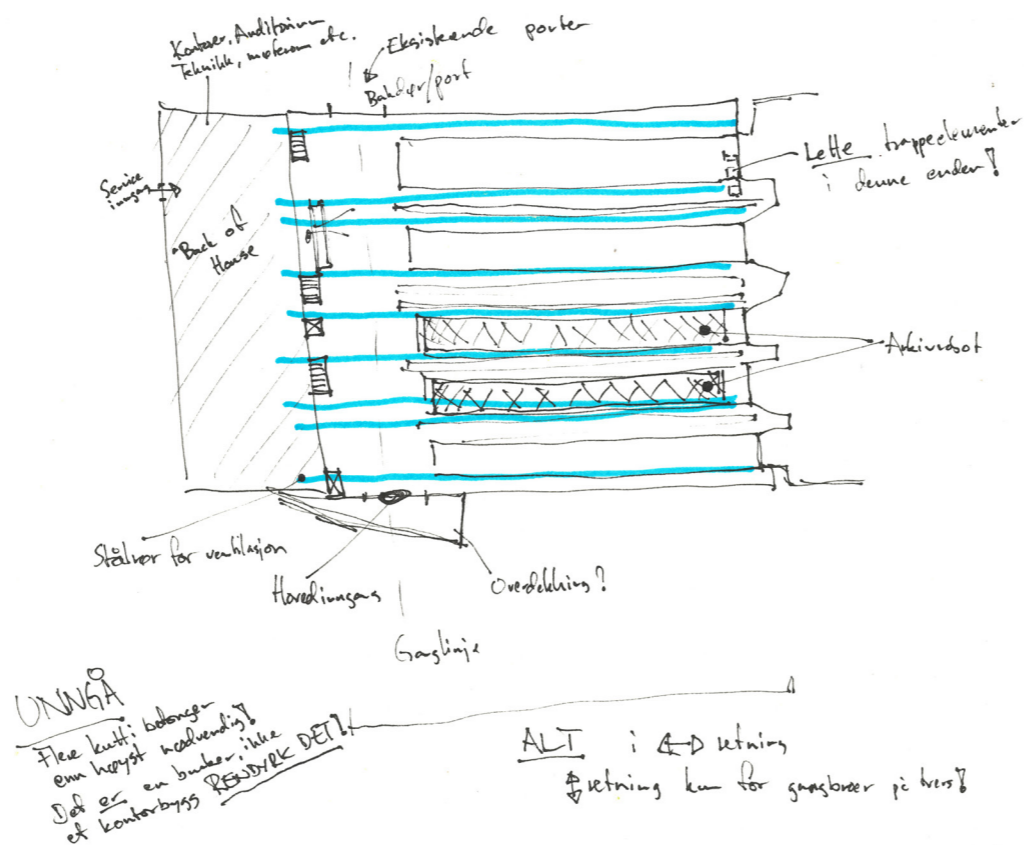 Kontorer, Auditorium
Teknikk, møterom etc.
Eksisterende porter
Bakdør/port
Lette trappeelementer
i denne enden!
Service
inngang
Back of
House
Arkivrobot
Stålrør for ventilasjon
Hovedinngang
Overdekking?
Ganglinje
UNNGÅ
Flere kutt i betongen
enn høyst nødvendig!
Det er en bunker ikke
et kontorbygg RENDYRK DET!
ALT i ↔ retning
↕ retning kun for gangbroer på tvers!